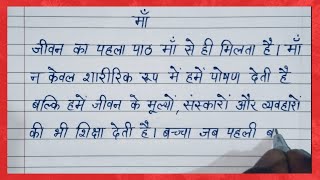 माँ
जीवन का पहला पाठ माँ से ही मिलता है। माँ
न केवल शारीरिक रूप में हमें पोषण देती है
बल्कि हमें जीवन के मूल्यों, संस्कारों और व्यवहारों
की भी शिक्षा देती है। बच्चा जब पहली ब